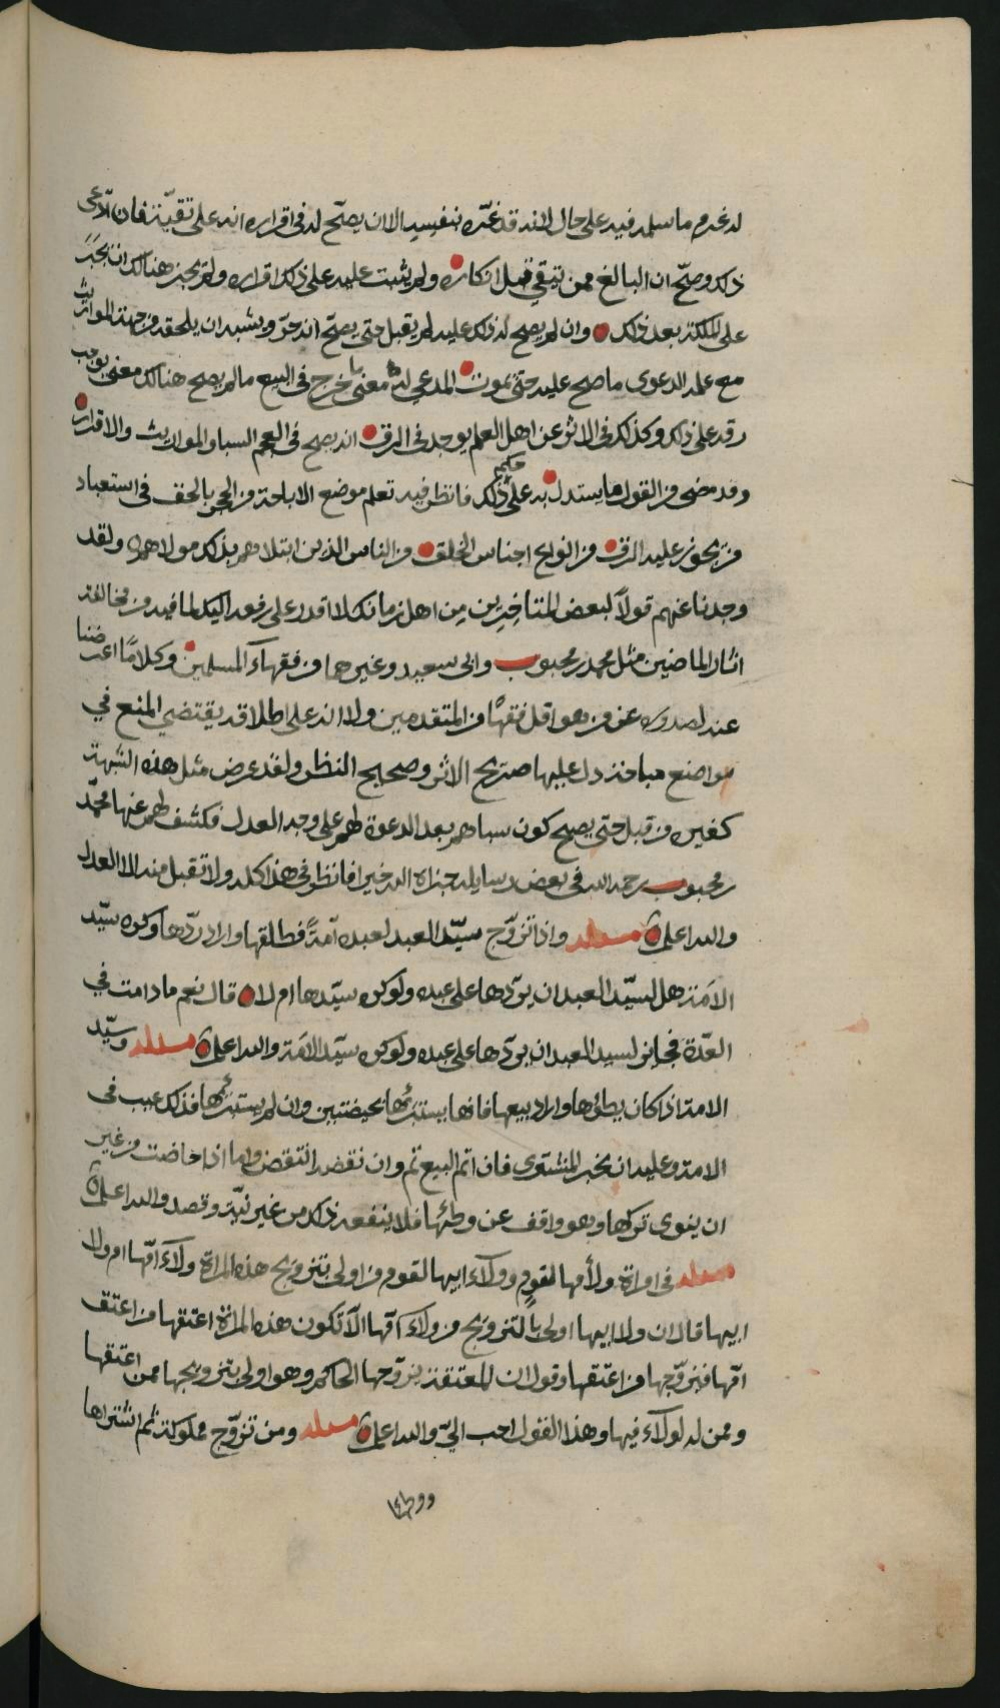 له غرم ما سلمه فيه على حال لانه قد غرّه بنفسه الا ان يصحّ له في اقراره انه على تقيّة فان ادّعى
ذلك وصحّ ان البالغ ممن تيقي قبل انكاره ولم يثبت عليه على ذلك اقراره ولم يجز هنالك ان يجبر
على الملكة بعد ذلك وان لم يصح له ذلك عليه لم يقبل حتى يصحّ انه حرّ ويشبه ان يلحقه من جهة المواريث
مع علمه الدعوى ما صح عليه حتى يموت المدعي له معنى ما خرج في البيع ما لم يصح هنالك معنى يوجب
رقه على ذلك وكذلك في الاثر عن اهل العلم يوجد في الرق انه يصح في العجم السبا والمواريث والاقرار
وقد مضى من القول ما يستدل به على حكم ذلك فانظر فيه تعلم موضع الاباحة من الحجر بالحق في استعباد
من يجوز عليه الرق من انواع اجناس الخلق من الناس الذين ابتلاهم بذلك مولاهم ولقد
وجدنا عنهم قولاً لبعض المتاخرين من اهل زمانك لا اقدر على رفعه اليك لما فيه من مخالفة
اثار الماضين مثل محمد بن محبوب وابي سعيد وغيرهما من فقهاء المسلمين وكلامًا اعرضنا
عنه لصدوره عن من هو اقل فقهًا من المتقدمين ولا انه على اطلاقه يقتضي المنع في
مواضع مباحة دل عليها صريح الاثر وصحيح النظر ولقد عرض مثل هذه الشبهة
كغيره من قبل حتى يصح كون سباهم بعد الدعوة لهم على وجه العدل فكشف لهم عنها محمّد
بن محبوب رحمه الله في بعض رسايله جزاه الله خيرا فانظر في هذا كله ولا تقبل منه الا العدل
والله اعلم مسئله واذا تزوّج سيّد العبد لعبده أمةً فطلقها واراد ردّها وكره سيّد
الأمة هل لسيّد العبد ان يردّها على عبده ولو كره سيّدها ام لا قال نعم ما دامت في
العدّة فجايز لسيد العبد ان يردّها على عبده ولو كره سيّد الامة والله اعلم مسئله وسيّد
الامة اذا كان يطؤها واراد بيعها فانها يستبرئها بحيضتين وان لم يستبرئها فذلك عيب في
الامة وعليه ان يخبر المشتري فان اتم البيع تم وان نقضه انتقض واما اذا حاضت من غير
ان ينوى تركها وهو واقف عن وطئها فلا ينفعه ذلك من غير نيّة وقصد والله اعلم
مسئله في امراة ولأمها لقوم وولاء ابيها لقوم من اولى بتزويج هذه المراة ولاء امّها ام ولا
ابيها قال ان ولا ابيها اولى بالتزويج من ولاء امّها الّا تكون هذه المراة اعتقها من اعتق
امّها فيزوّجها من اعتقها وقول ان المعتقة يزوّجها الحاكم وهو اولى بتزويجها ممن اعتقها
وممن له الولاء فيها وهذا القول احب اليّ والله اعلم مسئله ومن تزوّج مملوكة ثم اشتراها
ووطئها